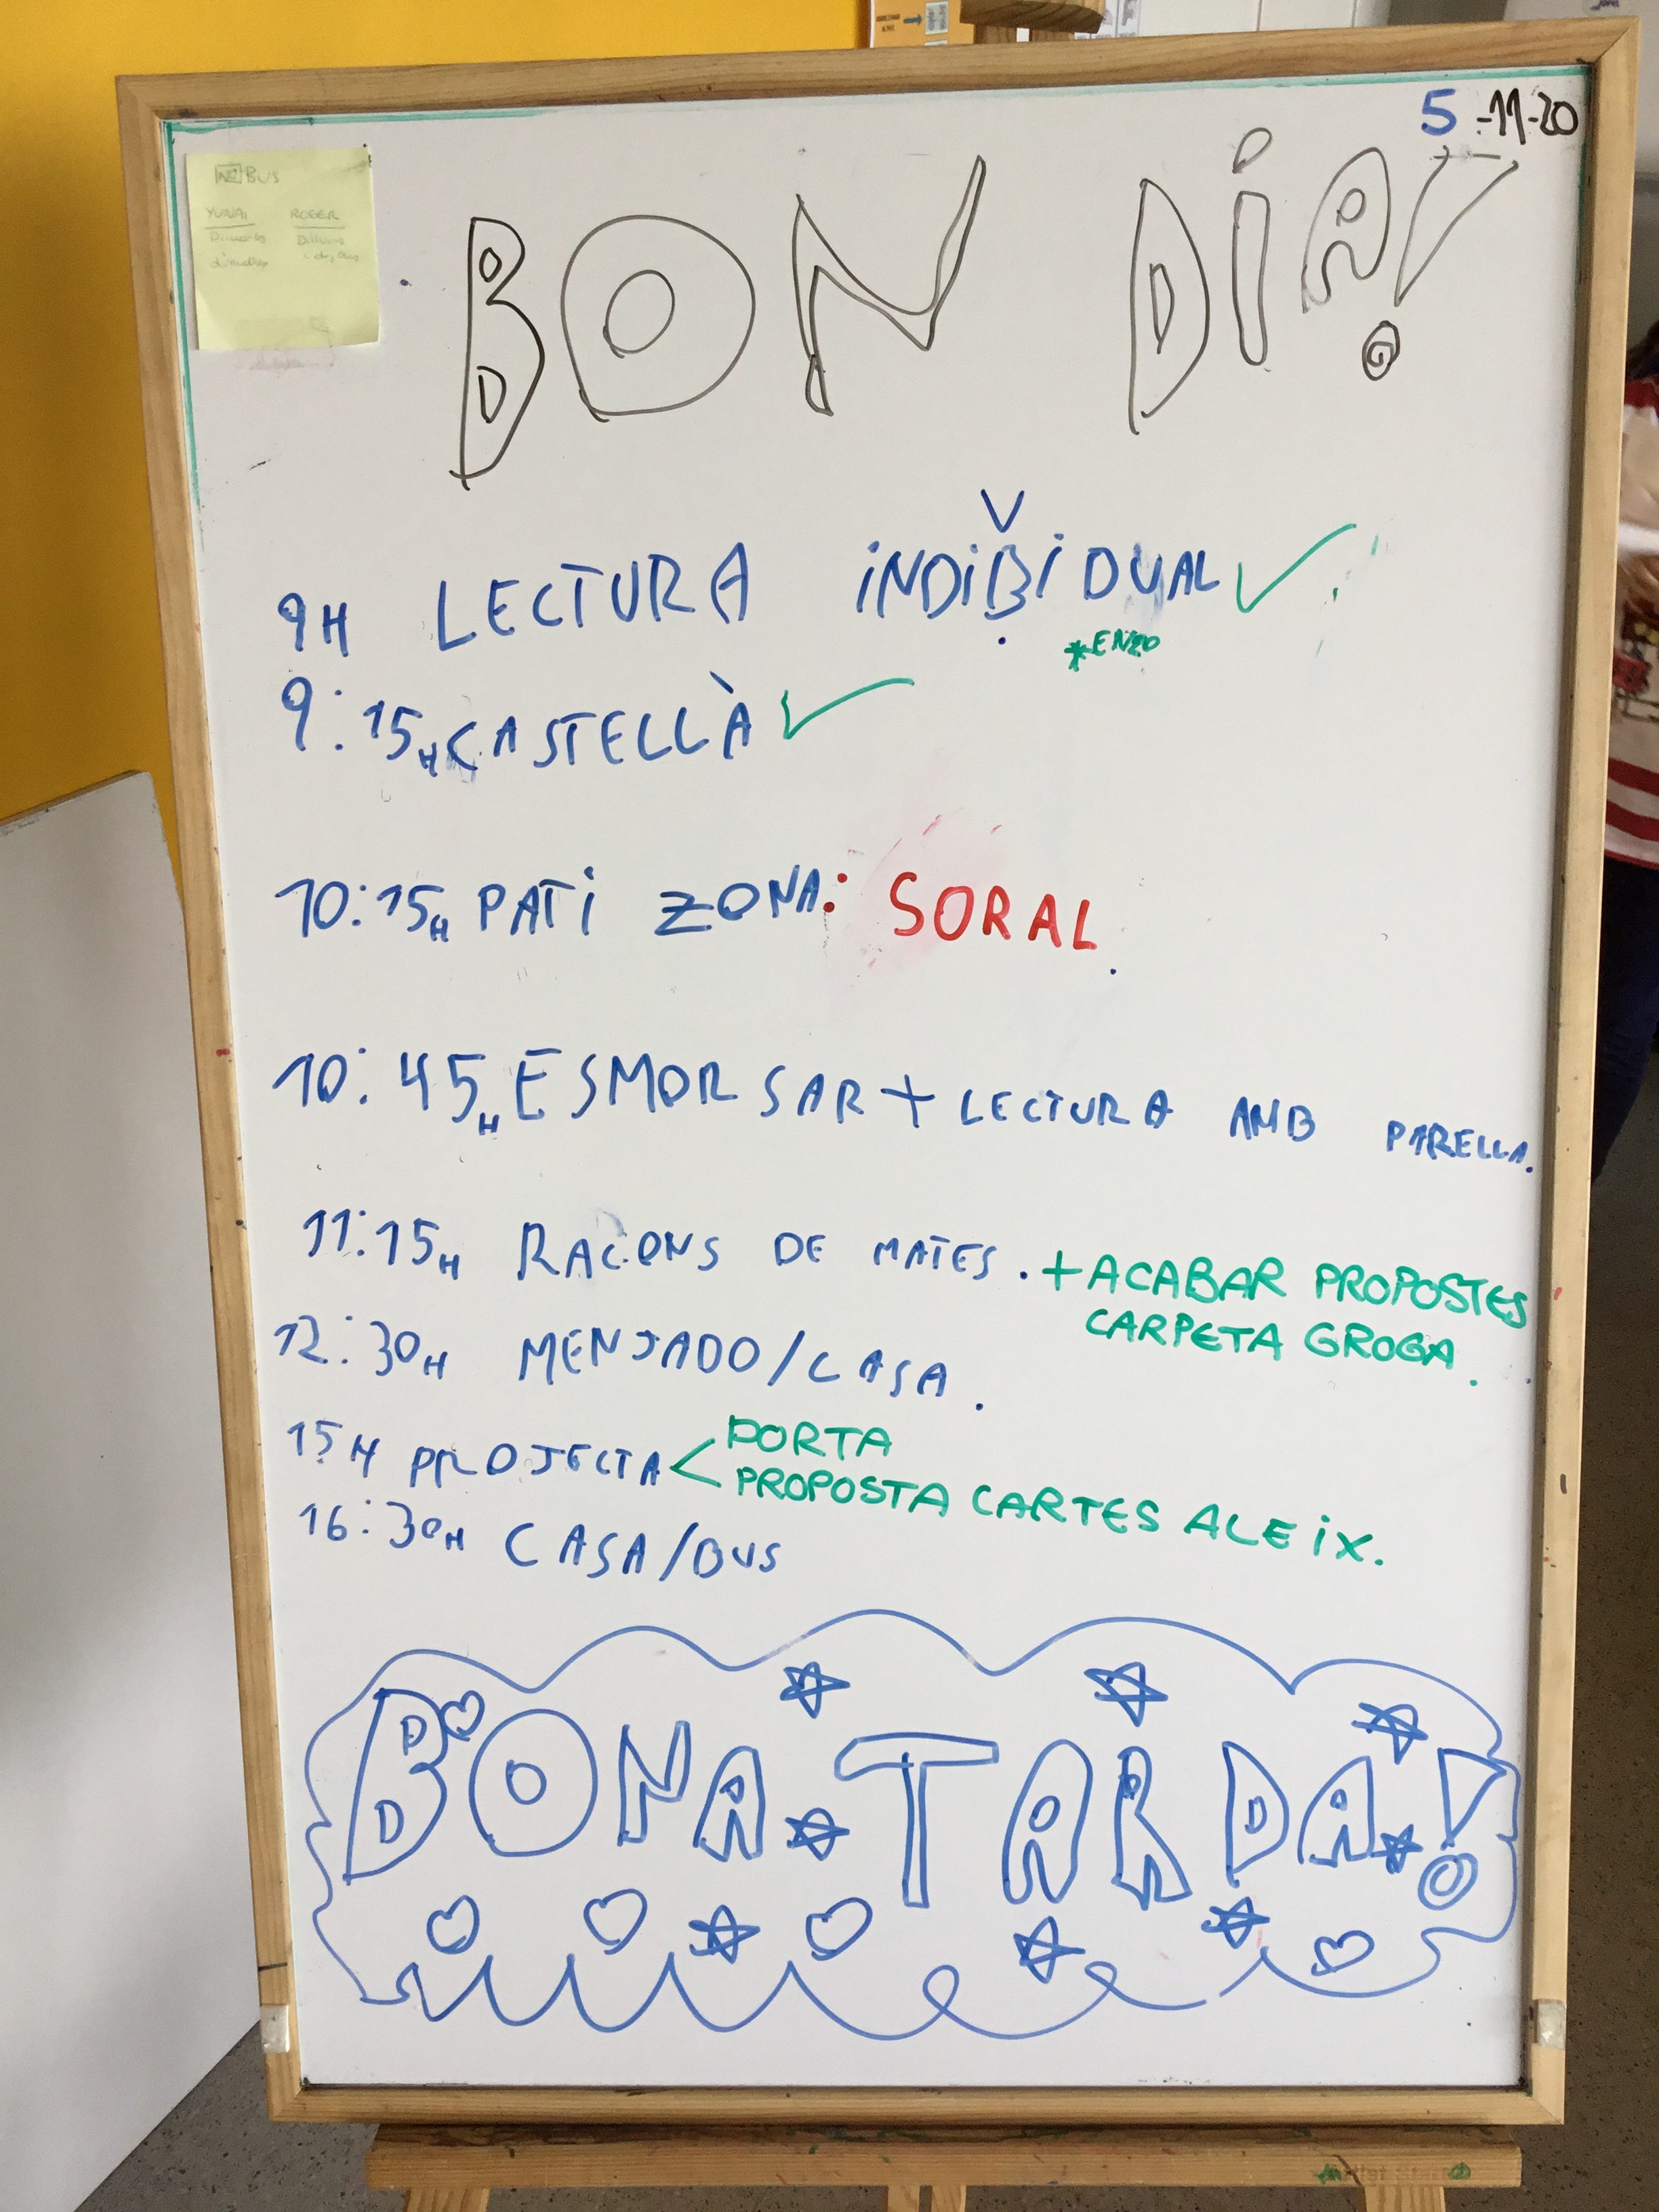 5-11-20
NO BUS
YUNAI ROGER
BON DIA!
V
9H LECTURA INDIBIDUAL
*ENZO
9:15H CASTELLÀ
10:15H PATI ZONA: SORAL
10:45H ESMORSAR + LECTURA AMB PARELLA.
11:15H RACONS DE MATES. + ACABAR PROPOSTES
CARPETA GROGA.
12:30H MENJADO/CASA.
15H PROJECTA < PORTA
PROPOSTA CARTES ALEIX.
16:30H CASA/BUS
BONA TARDA!